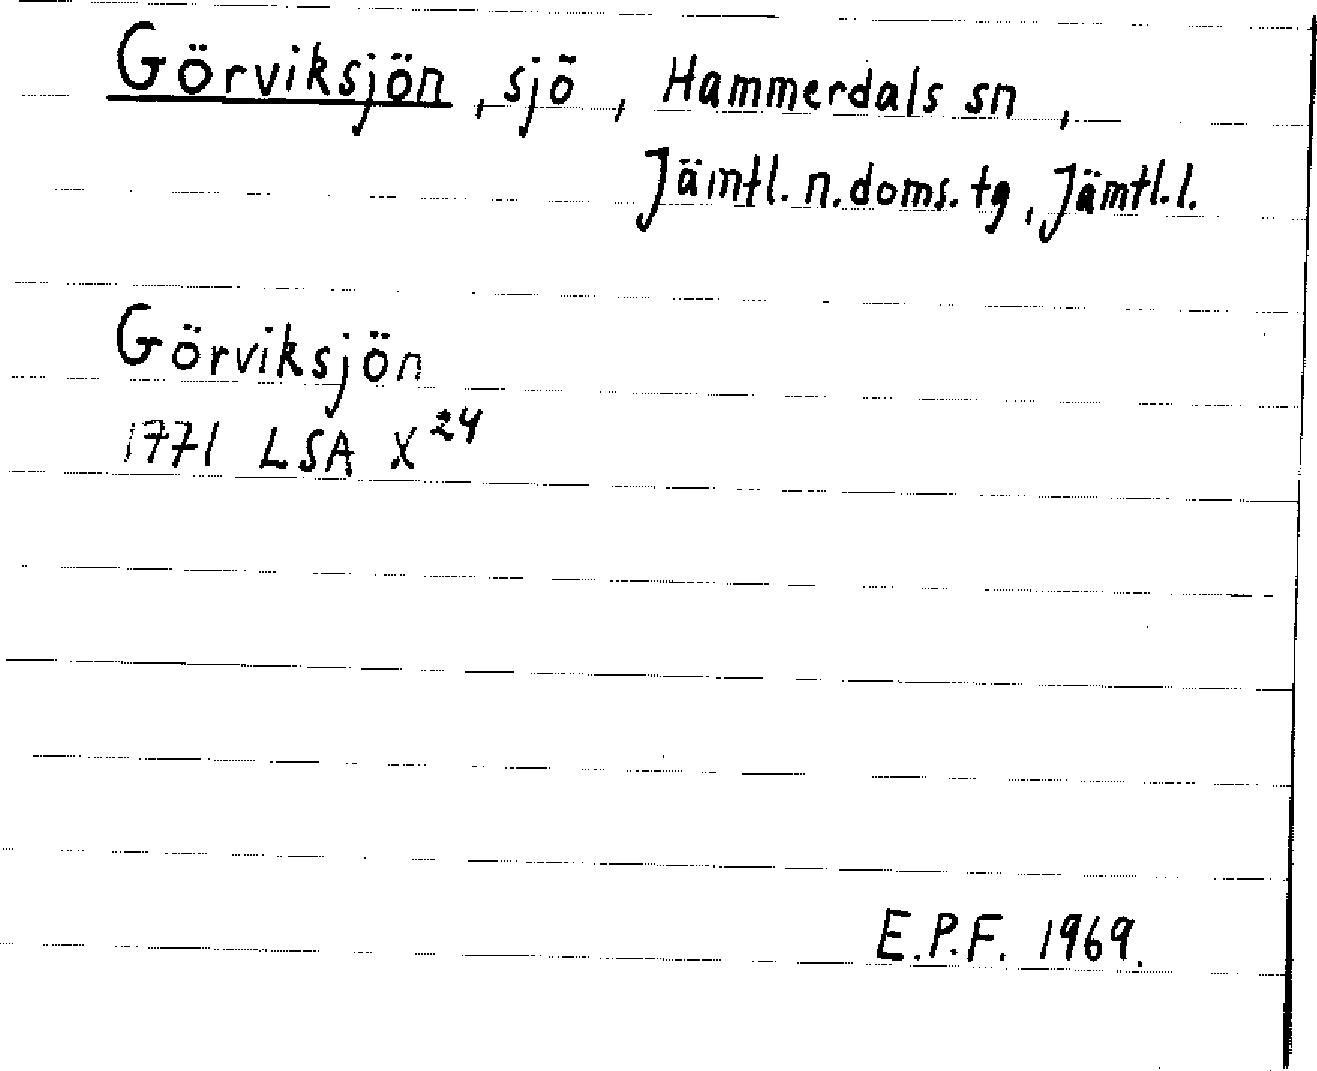 Görviksjön, sjö, Hammerdals sn,
Jämtl. n. doms. tg, Jämtl. l.
Görviksjön
1771 LSA X 24
E.P.F. 1969.